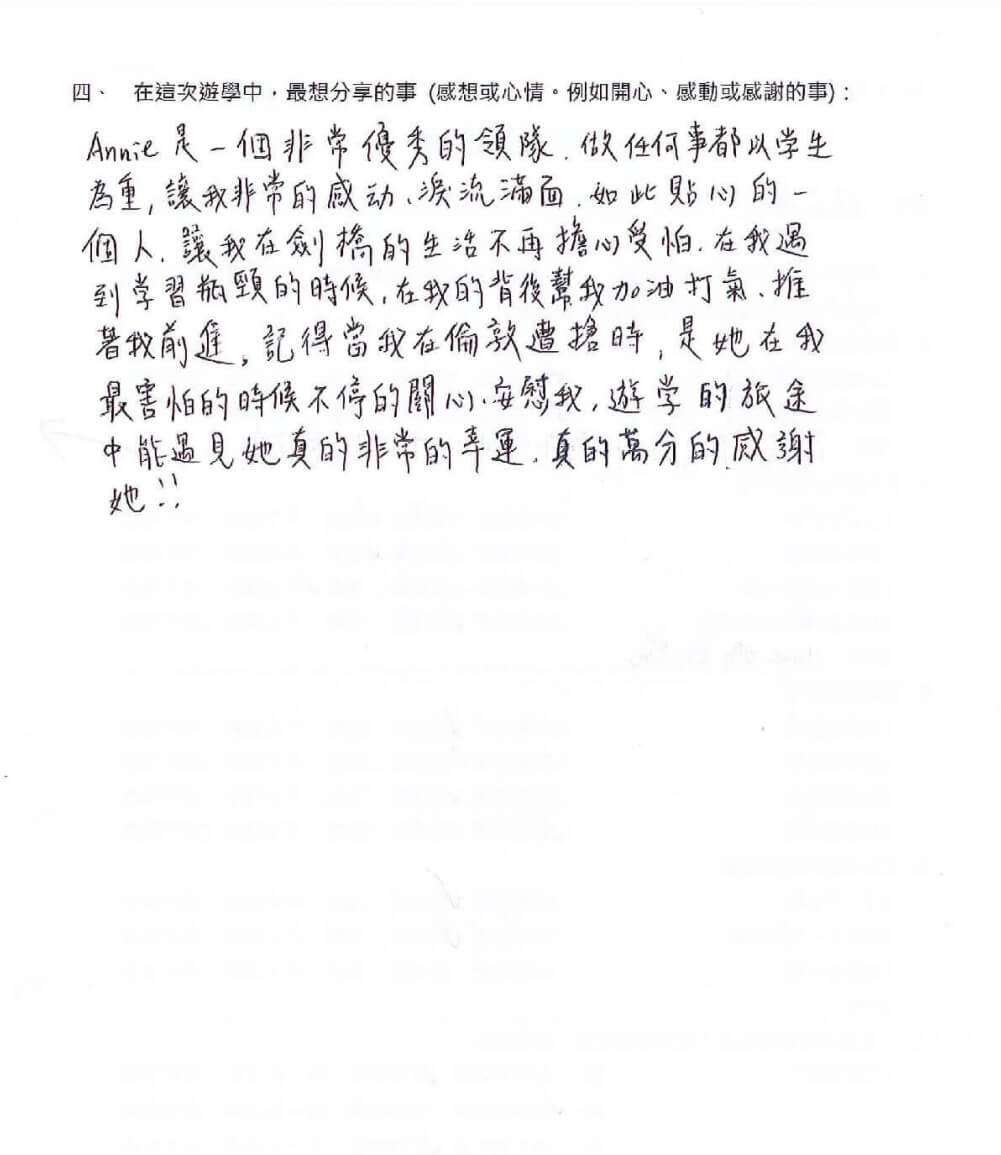 四、 在這次遊學中，最想分享的事 (感想或心情。例如開心、感動或感謝的事)：
Annie 是一個非常優秀的領隊. 做任何事都以学生
為重, 讓我非常的感动、淚流滿面. 如此貼心的一
個人. 讓我在劍橋的生活不再擔心受怕. 在我遇
到学習瓶頸的時候, 在我的背後幫我加油打氣、推
著我前進, 記得當我在倫敦遭搶時, 是她在我
最害怕的時候不停的關心、安慰我, 遊学的旅途
中能遇見她真的非常的幸運. 真的萬分的感謝
她!!